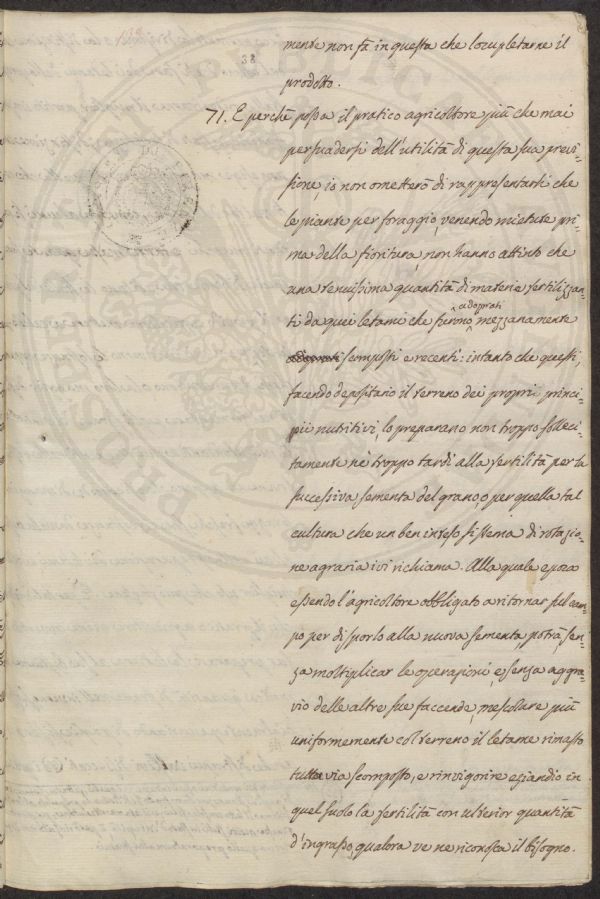 138
38
mente non fà in questa che locupletarne il
prodotto.
71. E perchè possa il pratico agricoltore più che mai
persuadersi dell'utilità di questa sua previ-
sione, io non ometterò di rappresentarli che
le piante per foraggio, venendo mietute pri-
ma della fioritura, non hanno attinto che
una tenuissima quantità di materie fertilizzan-
ti da quei letami che furono adoprati mezzanamente
adoprati scomposti e recenti: intanto che questi,
facendo depositario il terreno dei proprj princi-
pii nutritivi, lo preparano non troppo solleci-
tamente nè troppo tardi alla fertilità per la
successiva sementa del grano, o per quella tal
cultura che un ben inteso sistema di rotazio-
ne agraria ivi richiama. Alla quale epoca
essendo l'agricoltore obbligato a ritornar sul cam-
po per disporlo alla nuova sementa, potrà, sen-
za moltiplicar le operazioni e senza aggra-
vio delle altre sue faccende, mescolare più
uniformemente col terreno il letame rimasto
tuttavia scomposto, e rinvigorire eziandio in
quel suolo la fertilità con ulterior quantità
d'ingrasso, qualora ve ne riconosca il bisogno.